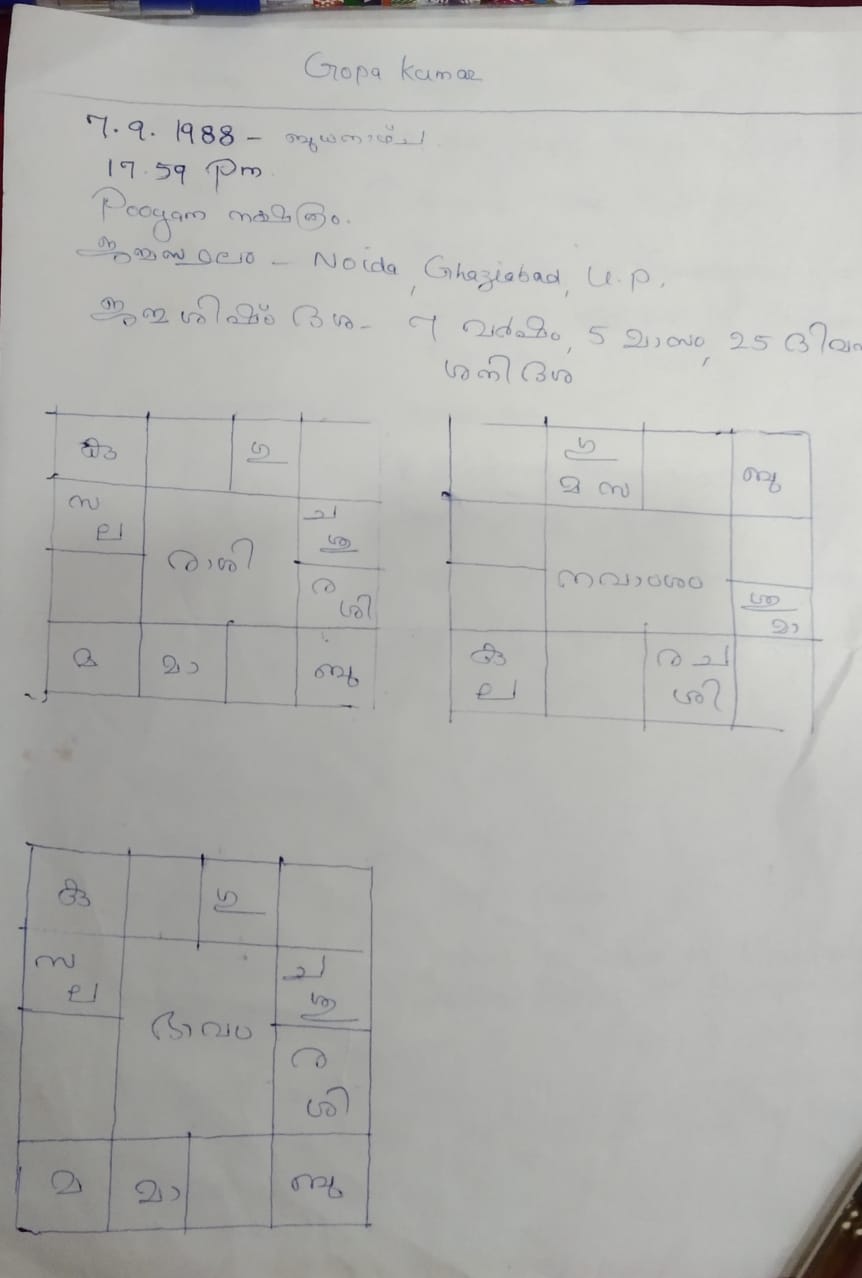 Gopa Kumar
7.9.1988 - ബുധനാഴ്ച
17.59 pm
Pooyam നക്ഷത്രം.
ജന്മസ്ഥലം - Noida, Ghaziabad, U.P.
ജന്മശിഷ്ടം ദശ - 7 വർഷം, 5 മാസം, 25 ദിവസ
ശനിദശ
കു ഗു
സ ച
ല ശു
രാശി
ര
ശി
മ മാ ബു
ഗു ബു
മ സ
നവാംശം
ശു
മാ
കു ര ച
ല ശി
കു ഗു
സ ച
ല ശു
ഭാവം
ര
ശി
മ മാ ബു